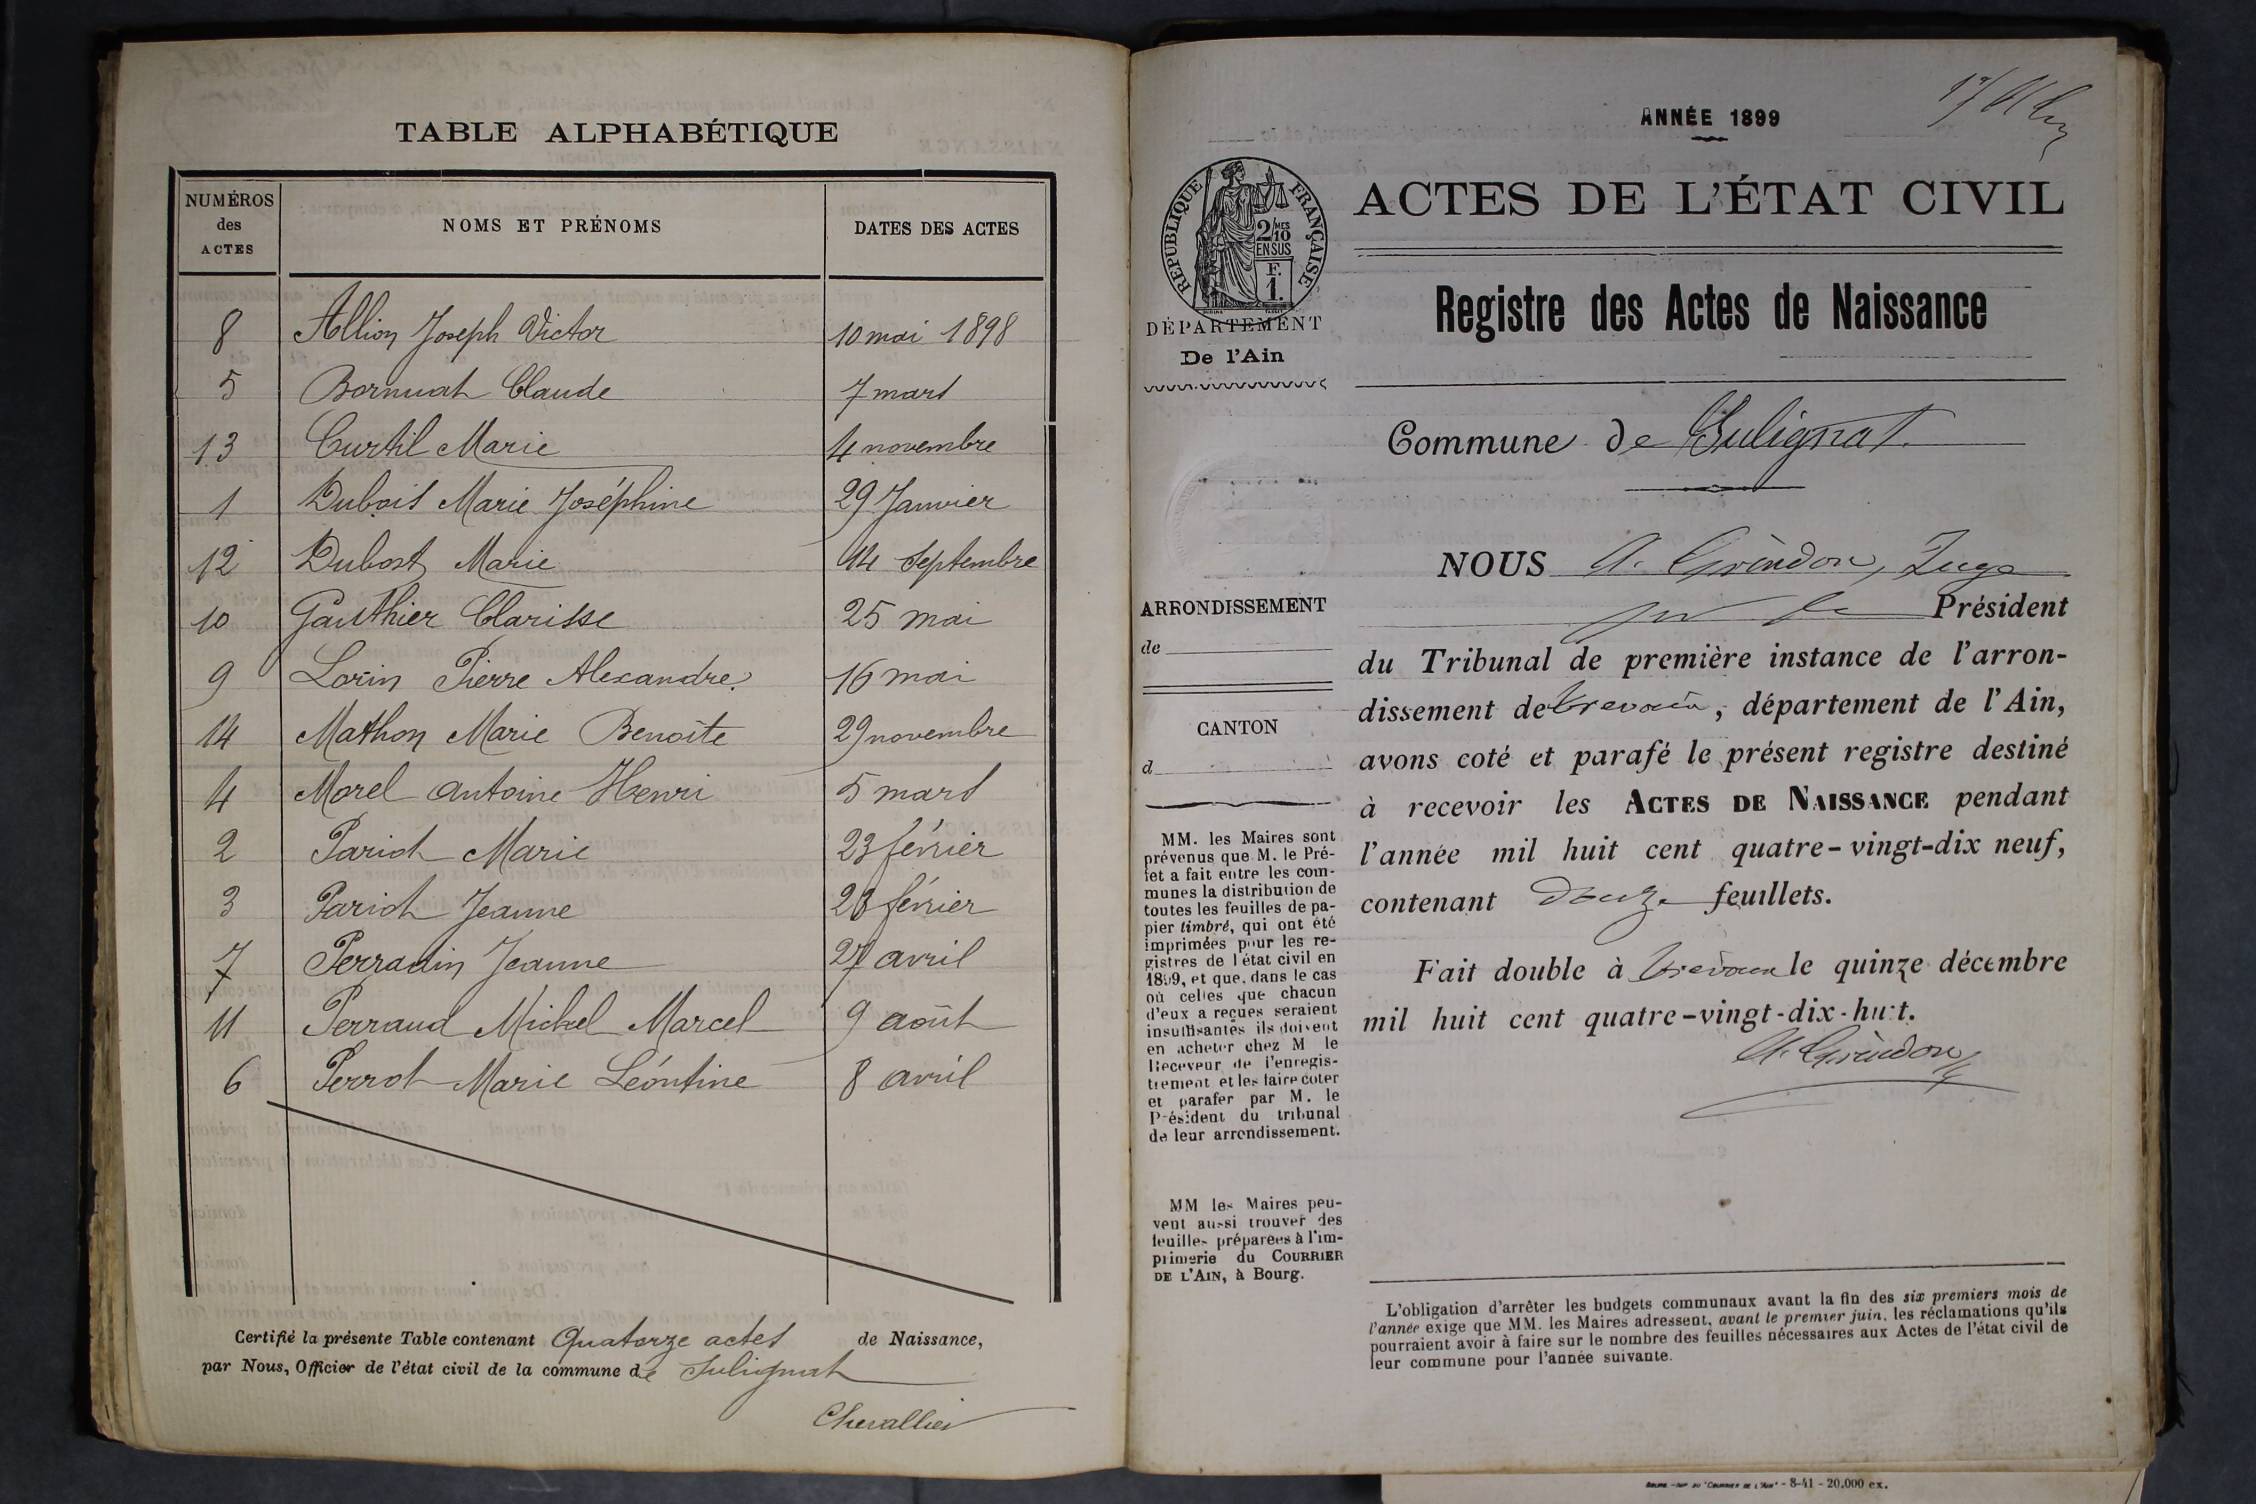 TABLE ALPHABÉTIQUE
NUMÉROS des ACTES NOMS ET PRÉNOMS DATES DES ACTES
8 Allion Joseph Victor 10 mai 1898
5 Bornuat Claude 7 mars
13 Curtil Marie 4 novembre
1 Dubois Marie Joséphine 29 Janvier
12 Dubost Marie 14 Septembre
10 Gauthier Clarisse 25 mai
9 Lorin Pierre Alexandre 16 mai
14 Mathon Marie Benoîte 29 novembre
4 Morel Antoine Henri 5 mars
2 Pariot Marie 23 février
3 Pariot Jeanne 23 février
7 Perradin Jeanne 27 avril
11 Perraud Michel Marcel 9 août
6 Perrot Marie Léontine 8 avril
Certifié la présente Table contenant Quatorze actes de Naissance,
par Nous, Officier de l'état civil de la commune de Sulignat
Chevallier
ANNÉE 1899
RÉPUBLIQUE FRANÇAISE
2/10 MES
EN SUS
F.
1.
DÉPARTEMENT
De l'Ain
ACTES DE L'ÉTAT CIVIL
Registre des Actes de Naissance
Commune de Sulignat
ARRONDISSEMENT
de
CANTON
d
MM. les Maires sont
prévenus que M. le Pré-
fet a fait entre les com-
munes la distribution de
toutes les feuilles de pa-
pier timbré, qui ont été
imprimées pour les re-
gistres de l'état civil en
1899, et que, dans le cas
où celles que chacun
d'eux a reçues seraient
insuffisantes ils doivent
en acheter chez M le
Receveur de l'enregis-
trement et les faire coter
et parafer par M. le
Président du tribunal
de leur arrondissement.
MM les Maires peu-
vent aussi trouver des
feuilles préparées à l'im-
primerie du COURRIER
DE L'AIN, à Bourg.
NOUS A. Grindon, Juge
pr le Président
du Tribunal de première instance de l'arron-
dissement de Trévoux, département de l'Ain,
avons coté et parafé le présent registre destiné
à recevoir les ACTES DE NAISSANCE pendant
l'année mil huit cent quatre-vingt-dix neuf,
contenant Douze feuillets.
Fait double à Trévoux le quinze décembre
mil huit cent quatre-vingt-dix-huit.
A. Grindon
L'obligation d'arrêter les budgets communaux avant la fin des six premiers mois de
l'année exige que MM. les Maires adressent, avant le premier juin, les réclamations qu'ils
pourraient avoir à faire sur le nombre des feuilles nécessaires aux Actes de l'état civil de
leur commune pour l'année suivante.
BOURG. - IMP DU "COURRIER DE L'AIN" - 8-41 - 20.000 ex.